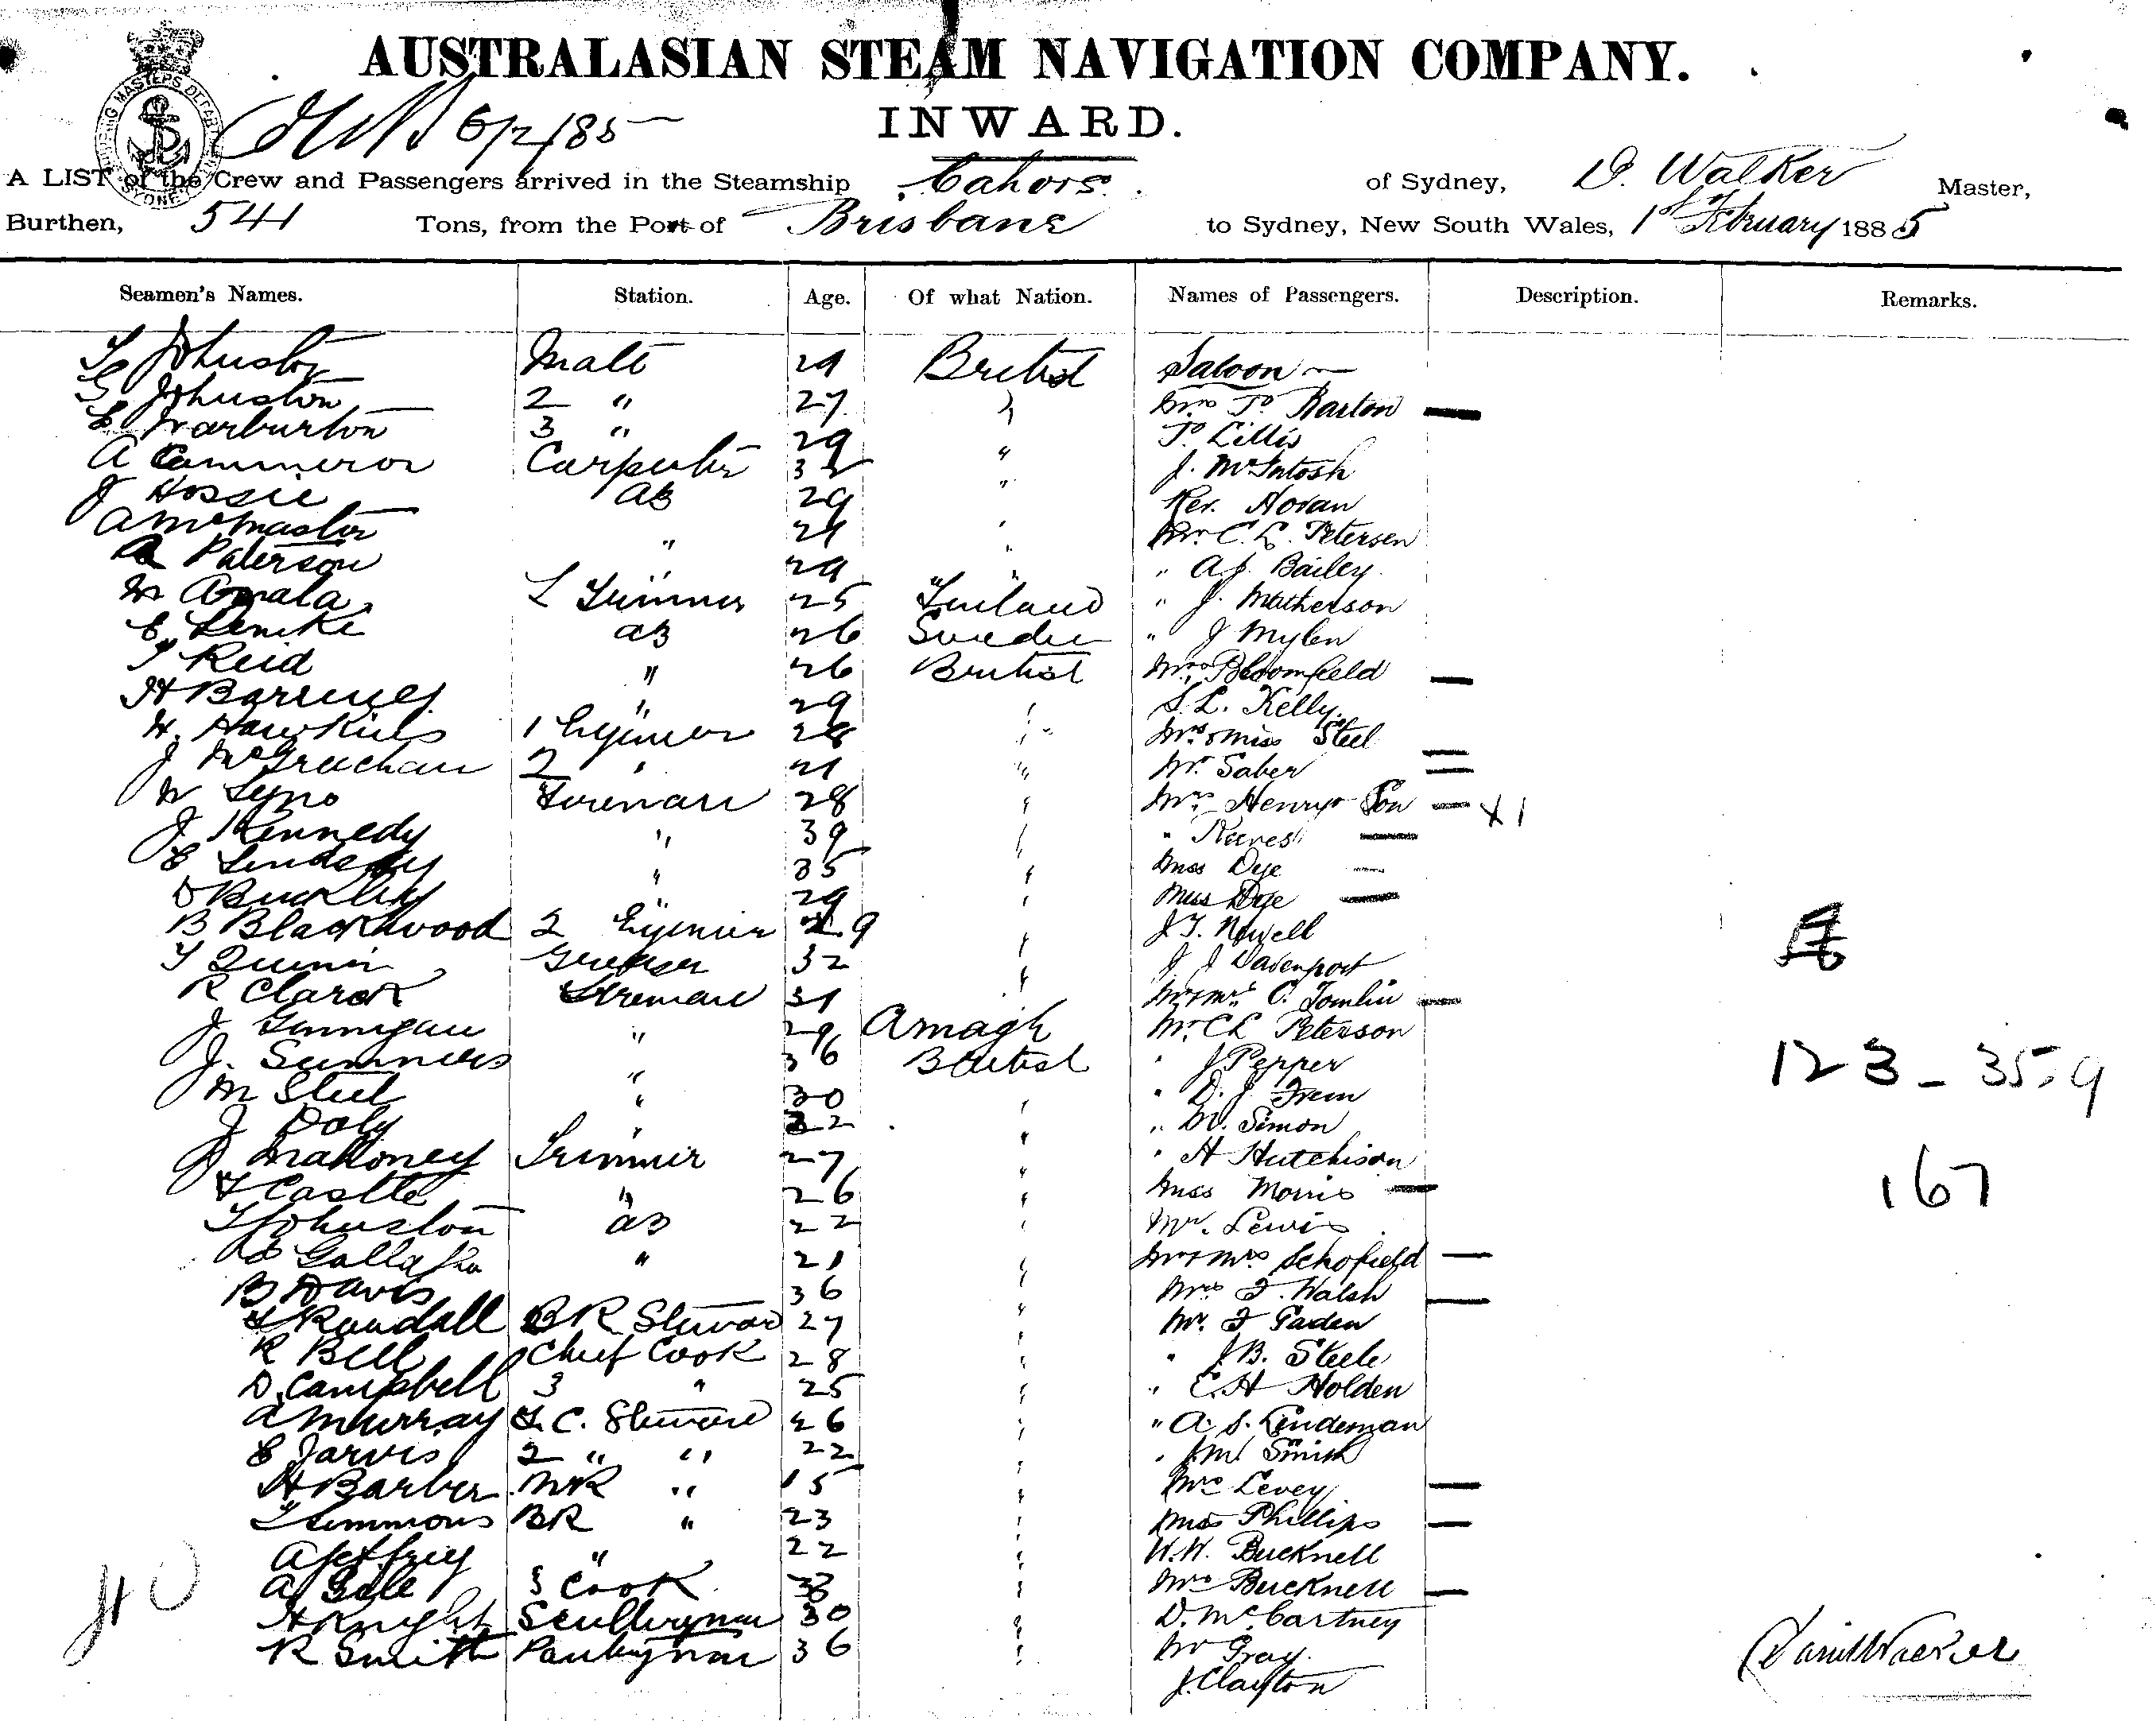 AUSTRALASIAN STEAM NAVIGATION COMPANY.
INWARD.
6/2/85
A LIST of the Crew and Passengers arrived in the Steamship Cahors. of Sydney, D. Walker Master,
Burthen, 541 Tons, from the Port of Brisbane to Sydney, New South Wales, 1st February 1885
Seamen's Names. Station. Age. Of what Nation. Names of Passengers. Description. Remarks.
Johnston Mate 29 British Saloon
G Johnston 2 " 27 " Mrs Jo Barton
E Warburton 3 " 29 Jo Lillis
A Cammeron Carpenter 32 " J. McIntosh
J Hossie AB 29 " Rev. Horan
A McMaster " 21 " Mr C. L. Petersen
A Paterson " 29 " " A J. Bailey
M Amala L Trimmer 25 Finland " J. Matherson
E Lemke AB 26 Sweden " J Mylen
J Reid " 26 British Mrs Bloomfield
H " 29 " S. L. Kelly
H. Hawkins 1 Engineer 28 " Mrs & Miss Steel
J McGreechan 2 " 21 " Mr Saber
W Fireman 28 " Mrs Henry & Son X 1
J Kennedy " 39 " " Reeves
E Lindsay " 35 " Miss Dye
D Buckley " 29 " Miss Dye
B Blackwood 2 Engineer 29 " J T. Nowell
T Quinn Greaser 32 " J J Davenport
R Clark Fireman 31 " Mr & Mrs C. Tomlin
J Gunnigan " 29 Armagh Mr C L Peterson
J. Summers " 36 British " J Pepper 123 - 35.9
M Steel " 30 " " D. J. Frem
J Doly " 32 " " W. Simon
J Mahoney Trimmer 27 " " H Hutchison
T Castle " 26 " Miss Morris 167
T Johnston AB 22 " Mr. Lewis
Gallagher " 21 " Mr & Mrs Schofield
B Davis 36 " Mrs J. Walsh
T Randall BR Steward 27 " Mr. J Gaden
R Bell Chief Cook 28 " " J B. Steele
D. Campbell 3 " 25 " " E. H Holden
A Murray F. C. Steward 26 " " A. S. Lindeman
E Jarvis 2 " " 22 " " Smith
H Barber MR " 15 " Mrs Levey
T Simmons BR " 23 " Miss Phillips
A Jeffrey " 22 " W. W. Bucknell
A Gale 3 Cook 33 " Mrs Bucknell
H Knight Sculleryman 30 " D. McCartney
R Smith Pantryman 36 " Mr Gray
J. Clayton